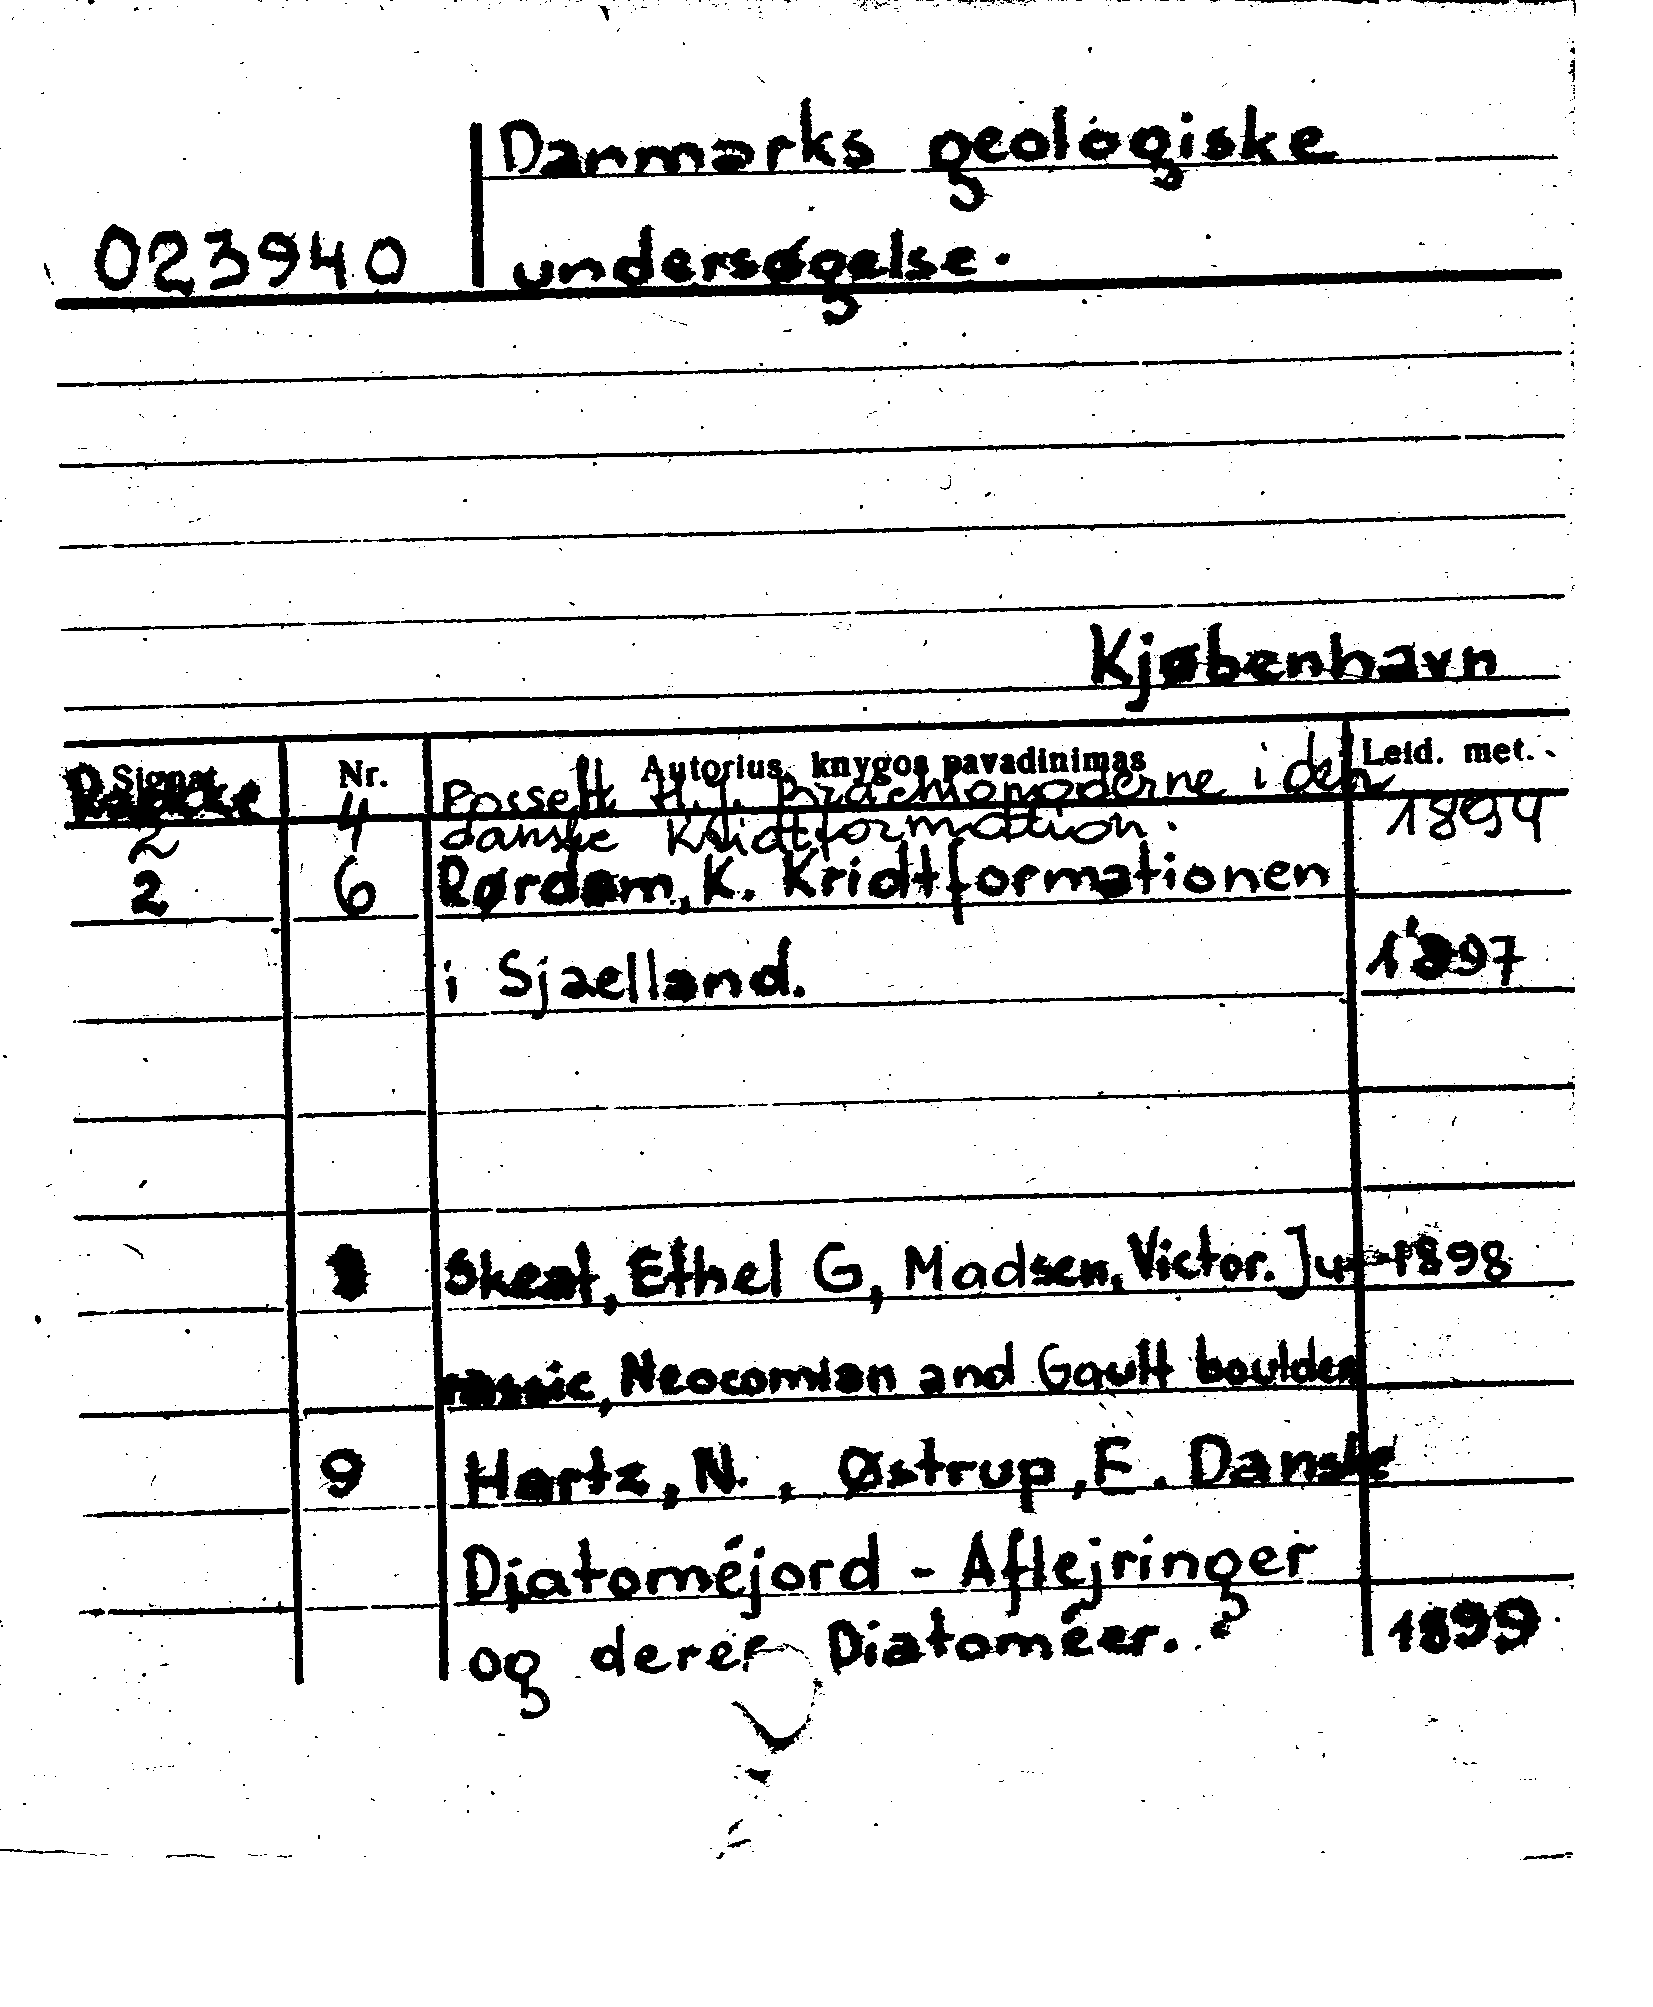 Danmarks geologiske
023940 undersøgelse.
Kjøbenhavn
Signat. Nr. Autorius, knygos pavadinimas Leid. met.
Række 4 Posselt H. J. Brachiopoderne i den
2 danske Kridtformation. 1894
2 6 Rørdam, K. Kridtformationen
i Sjaelland. 1897
Skeat, Ethel G, Madsen, Victor. Ju- 1898
rassic, Neocomian and Gault boulders
9 Hartz, N., Østrup, E. Danske
Diatoméjord - Aflejringer
og deres Diatoméer. 1899